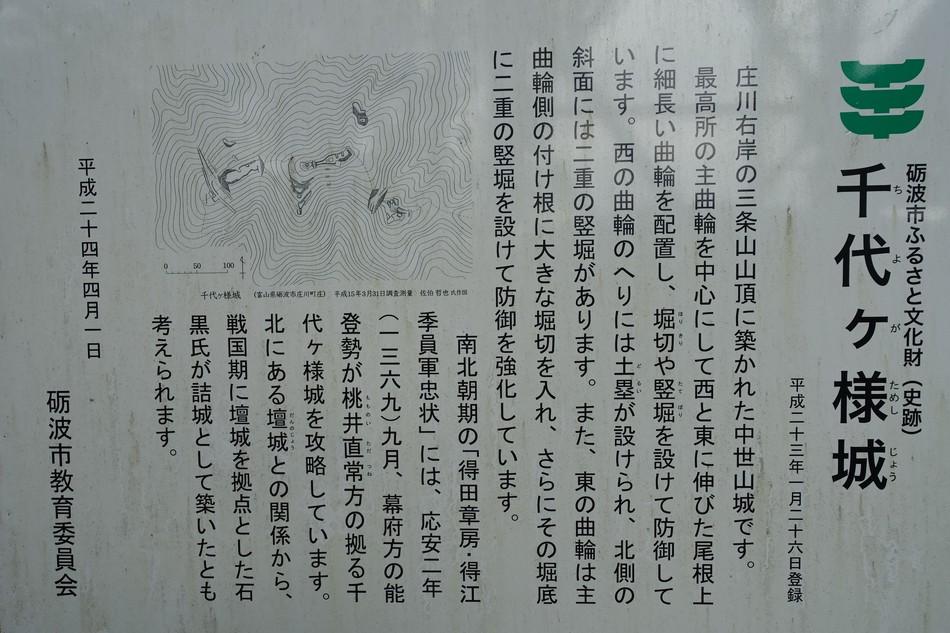 砺波市ふるさと文化財（史跡）
千代ヶ様城
ちよがためしじょう
平成二十三年一月二十六日登録
庄川右岸の三条山山頂に築かれた中世山城です。
最高所の主曲輪を中心にして西と東に伸びた尾根上
に細長い曲輪を配置し、堀切や竪堀を設けて防御して
ほりきり
たてぼり
います。西の曲輪のへりには土塁が設けられ、北側の
どるい
斜面には二重の竪堀があります。また、東の曲輪は主
曲輪側の付け根に大きな堀切を入れ、さらにその堀底
に二重の竪堀を設けて防御を強化しています。
0 50 100
千代ヶ様城 （富山県砺波市庄川町庄） 平成15年3月31日調査測量 佐伯哲也氏作図
南北朝期の「得田章房・得江
季員軍忠状」には、応安二年
（一三六九）九月、幕府方の能
登勢が桃井直常方の拠る千
もものい ただつね
代ヶ様城を攻略しています。
北にある壇城との関係から、
だんのじょう
戦国期に壇城を拠点とした石
黒氏が詰城として築いたとも
考えられます。
平成二十四年四月一日
砺波市教育委員会